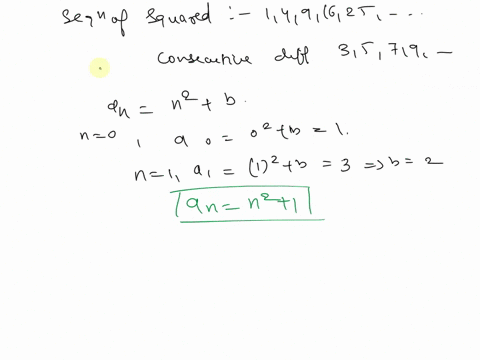 Seqn of squared :- 1, 4, 9, 16, 25, - ...
Consecutive diff 3, 5, 7, 9, —
an = n² + b.
n=0, a0 = 0² + b = 1.
n=1, a1 = (1)² + b = 3 => b = 2
an = n² + 1